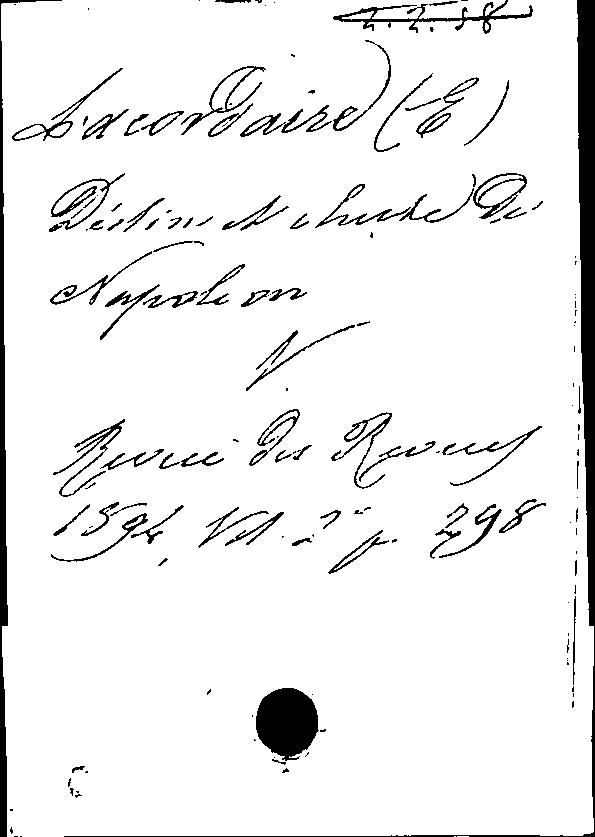 2.2.58
Lacordaire (E)
Déclin et chute de
Napoleon
V.
Revue des Revues
1894, Vol. 2e p. 298
C